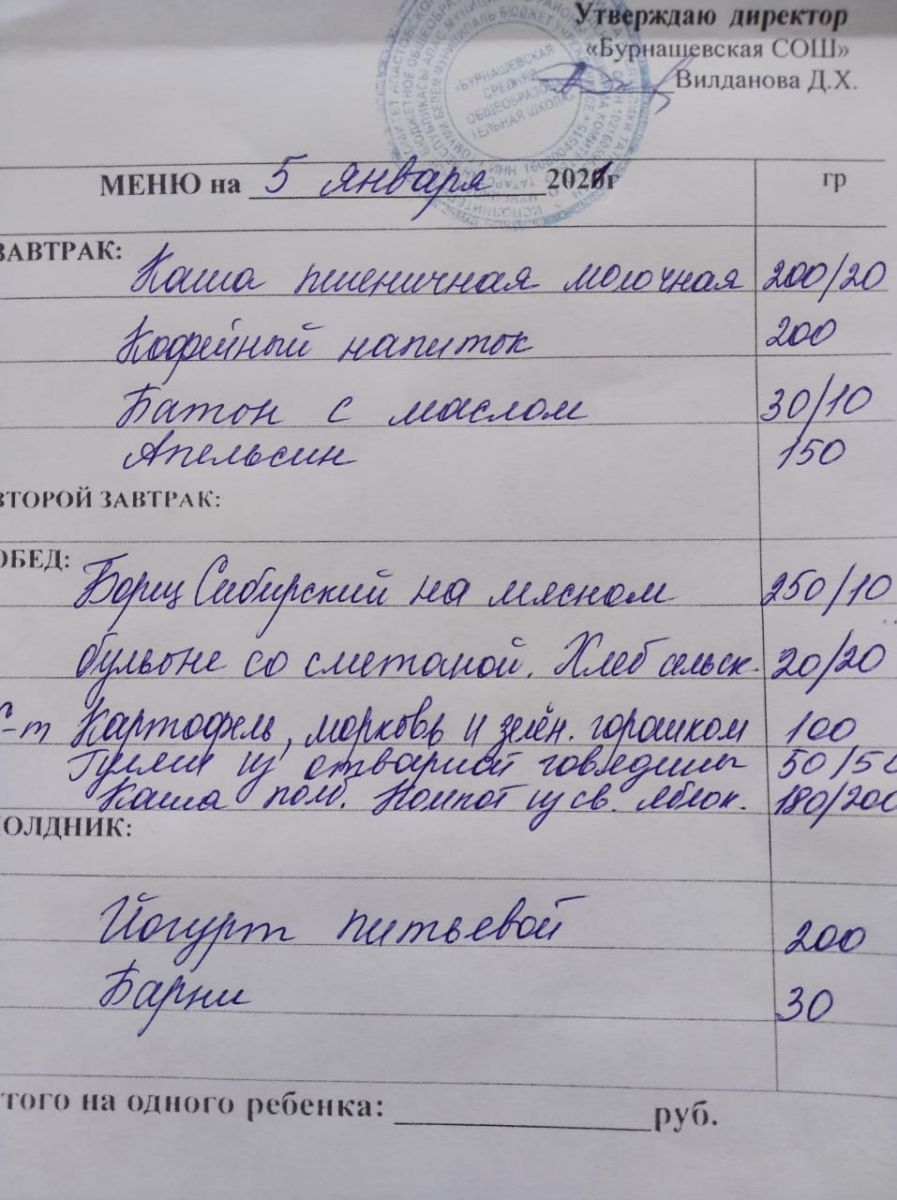 Утверждаю директор
«Бурнашевская СОШ»
Вилданова Д.Х.
«БУРНАШЕВСКАЯ
СРЕДНЯЯ
ОБЩЕОБРАЗОВА
ТЕЛЬНАЯ ШКОЛА»
МЕНЮ на 5 января 2021г гр
ЗАВТРАК:
Каша пшеничная молочная 200/20
Кофейный напиток 200
Батон с маслом 30/10
Апельсин 150
ВТОРОЙ ЗАВТРАК:
ОБЕД:
Борщ Сибирский на мясном 250/10
бульоне со сметаной. Хлеб сельск. 20/20
С-т Картофель, морковь и зелён. горошком 100
Гуляш из отварной говядины 50/50
Каша полб. Компот из св. яблок. 180/200
ПОЛДНИК:
Йогурт питьевой 200
Барни 30
того на одного ребенка: руб.